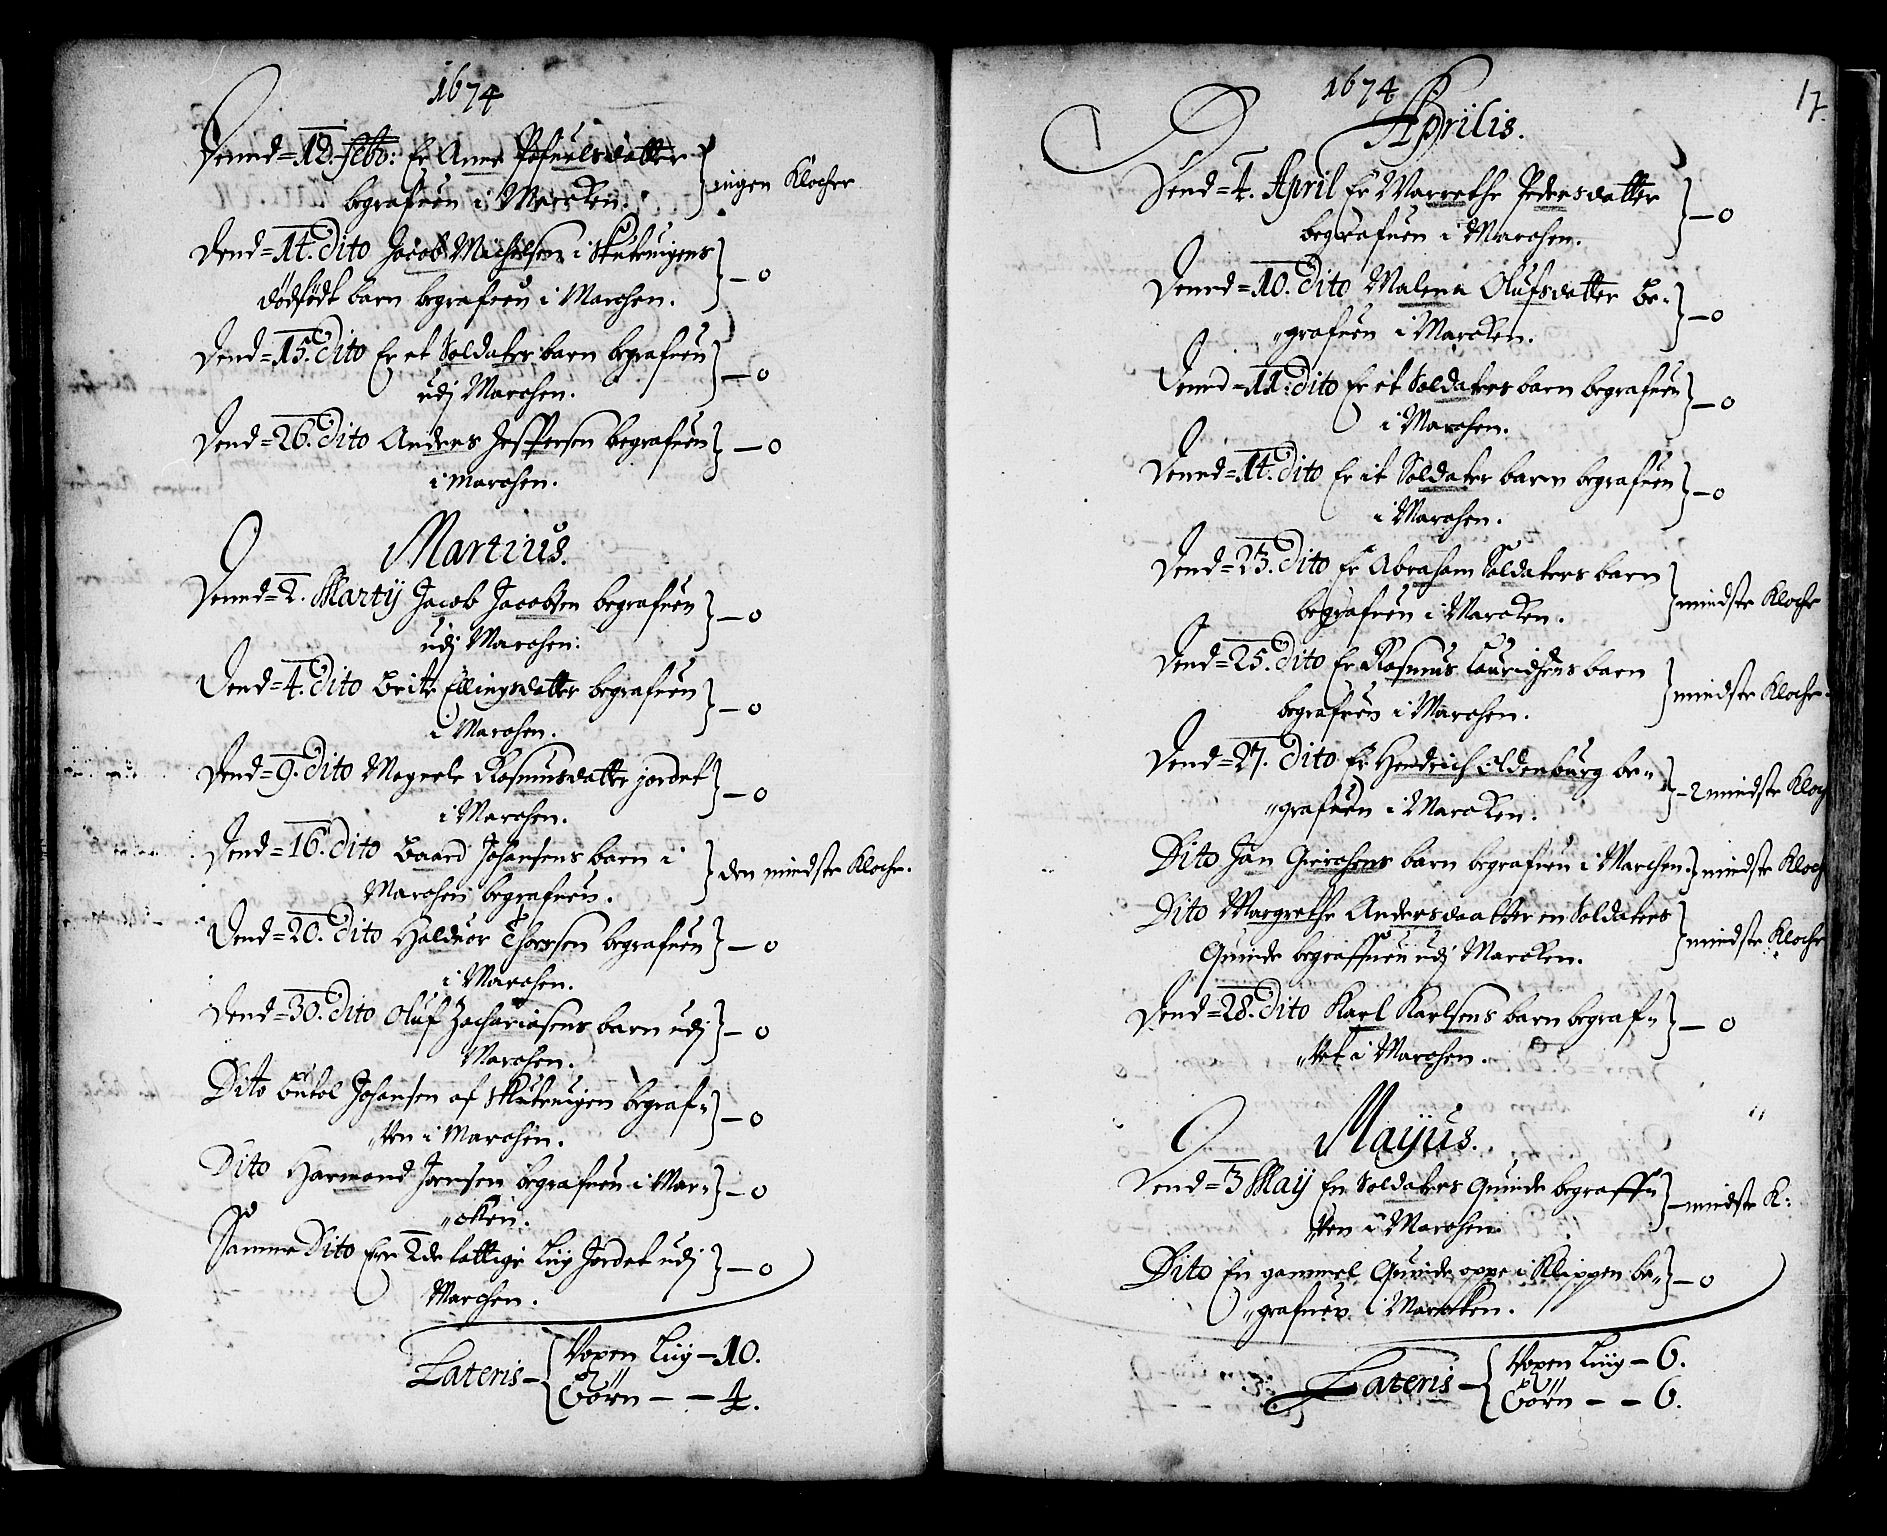 1674
Dend=12. febr: Er Anne Pofuelsdatter
begrafuen i Marcken. } ingen Klocher
Dend=14. Dito Jacob Michelsen i Skuteuigens
dødfødt barn begrafuen i Marchen. } — 0
Dend=15. Dito Er et Soldater barn begrafuen
udj Marchen. } — 0
Dend=26. Dito Anders Jespersen begrafuen } — 0
i Marchen.
Martius.
Dend=2. Martij Jacob Jacobsen begrafuen
udj Marchen: } — 0
Dend=4. Dito Brite Ellingsdatter begrafuen
i Marchen. } — 0
Dend=9. Dito Rasmusdatter jordet
i Marchen. } — 0
Dend=16. Dito Baard Johansens barn i
Marchen begrafuen. } den mindste Kloche.
Dend=20. Dito Halduor Thorsen begrafuen } — 0
i Marchen.
Dend=30. Dito Oluf Zachariasens barn udj } — 0
Marchen.
Dito Johansen af Skuteuigen begraf„
„uen i Marchen. } — 0
Dito Harmand Jensen begrafuen i Mar„ } — 0
„cken.
Samme Dito Ere 2de fattige Liig Jordet udj } — 0
Marchen.
Lateris — { Voxen Liig — 10.
Börn — — 4.
1674 17.
Aprilis.
Dend=4. April Er Marrethe Pedersdatter
begrafuen i Marchen. } — 0
Dend=10. Dito Malena Olufsdatter be„
„grafuen i Marcken. } — 0
Dend=11. Dito Er et Soldaters barn begrafuen
i Marchen. } — 0
Dend=14. Dito Er it Soldater barn begrafuen
i Marchen. } — 0
Dend=23. Dito Er Abraham Soldaters barn
begrafuen i Marcken. } mindste Kloche
Dend=25. Dito Er Rasmus Lauridsens barn
begrafuen i Marchen. } mindste Kloche.
Dend=27. Dito Er Hendrich Oldenburg be„
„grafuen i Marcken. } — 2 mindste Kloch
Dito Jan barn begrafuen i Marchen. } mindste Kloch
Dito Margrethe Andersdaatter en Soldaters
Quinde begraffuen udj Marcken. } mindste Kloche
Dend=28. Dito Karl Karlsens barn begraf„
„uet i Marchen. } — 0
Mayus.
Dend=3 May En Soldaters Quinde begraff„
„uen i Marchen. } — mindste K:
Dito En gammel Quinde oppe i Klippen be„
„grafuen i Marcken. } — 0
Lateris — { Voxen Liig — 6.
Börn — — 6.